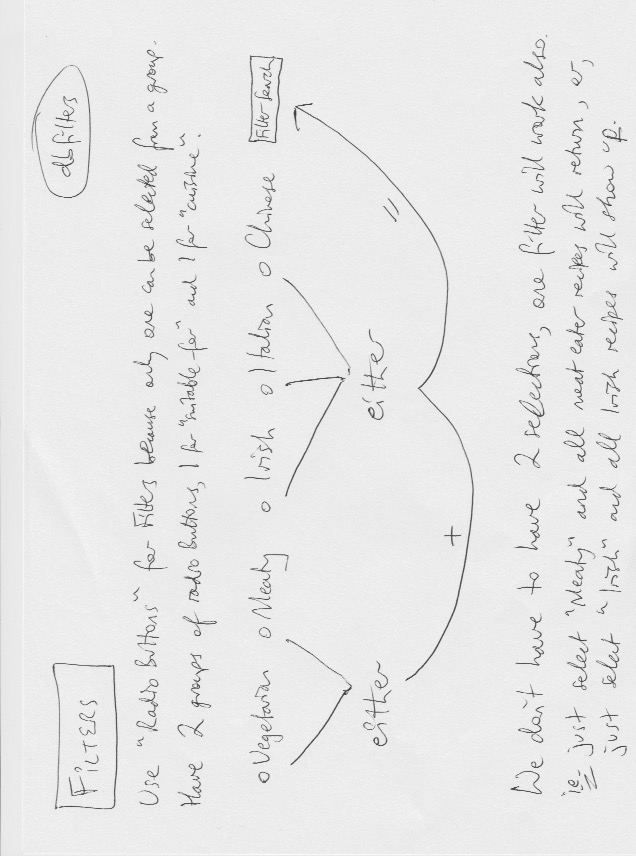 FILTERS
dbfilters
Use "Radio Buttons" for Filters because only one can be selected from a group.
Have 2 groups of radio buttons, 1 for "suitable-for" and 1 for "cuisine".
o Vegetarian o Meaty o Irish o Italian o Chinese Filter Search
either either
+ =
We don't have to have 2 selections, one filter will work also.
ie just select "Meaty" and all meat eater recipes will return, or,
just select "Irish" and all Irish recipes will show up.